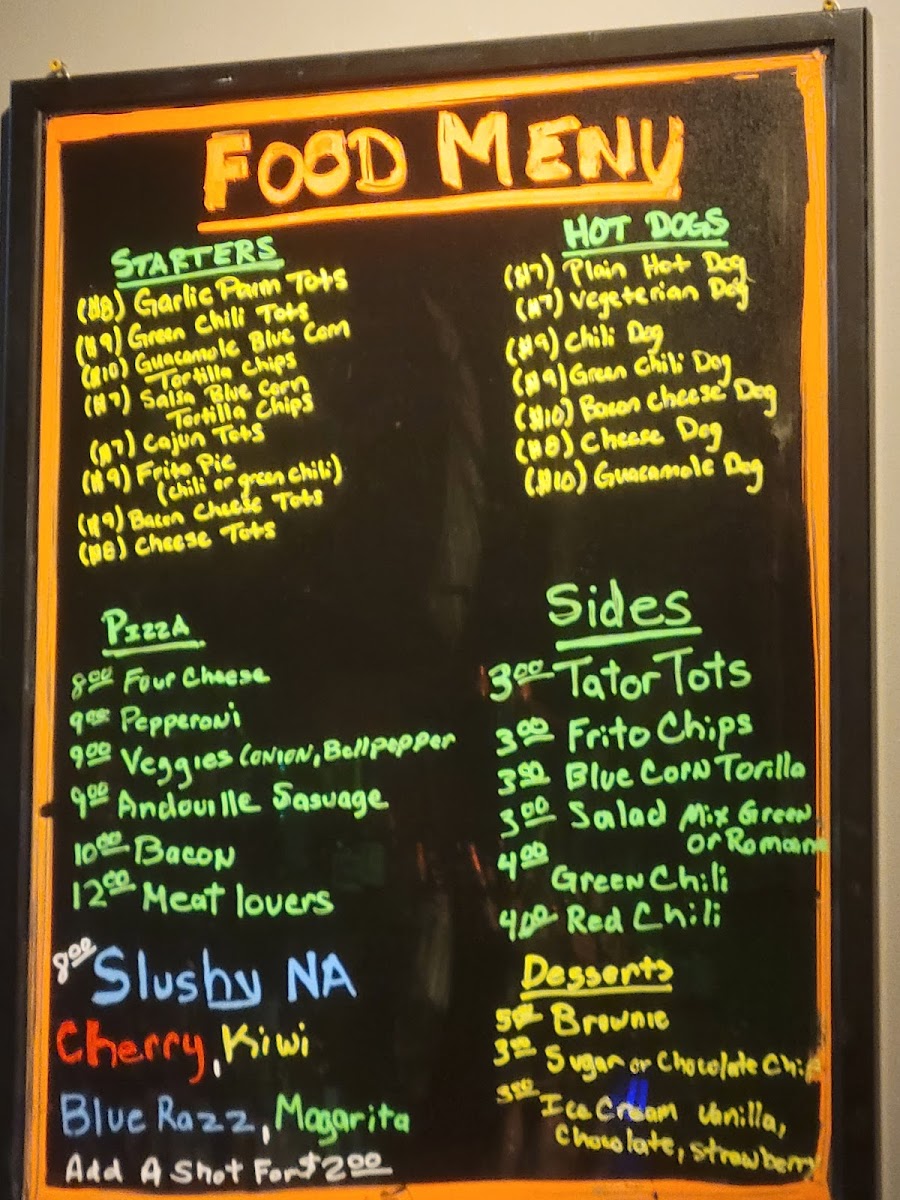 FOOD MENU
STARTERS
($8) Garlic Parm Tots
($9) Green Chili Tots
($10) Guacamole Blue Corn
Tortilla Chips
($7) Salsa Blue Corn
Tortilla Chips
($7) Cajun Tots
($9) Frito Pie
(chili or green chili)
($9) Bacon Cheese Tots
($8) Cheese Tots
HOT DOGS
($7) Plain Hot Dog
($7) Vegeterian Dog
($9) Chili Dog
($9) Green Chili Dog
($10) Bacon Cheese Dog
($8) Cheese Dog
($10) Guacamole Dog
PIZZA
800 Four Cheese
900 Pepperoni
900 Veggies (ONION, Bellpepper
900 Andouille Sasuage
1000 Bacon
1200 Meat lovers
Sides
300 Tator Tots
300 Frito Chips
300 Blue Corn Torilla
300 Salad Mix Green
or Romann
400
Green Chili
400 Red Chili
800 Slushy NA
Cherry, Kiwi
Blue Razz, Magarita
Add A Shot For $200
Desserts
500 Brownie
300 Sugar or Chocolate Chip
Ice Cream Vanilla,
Chocolate, Strawberry